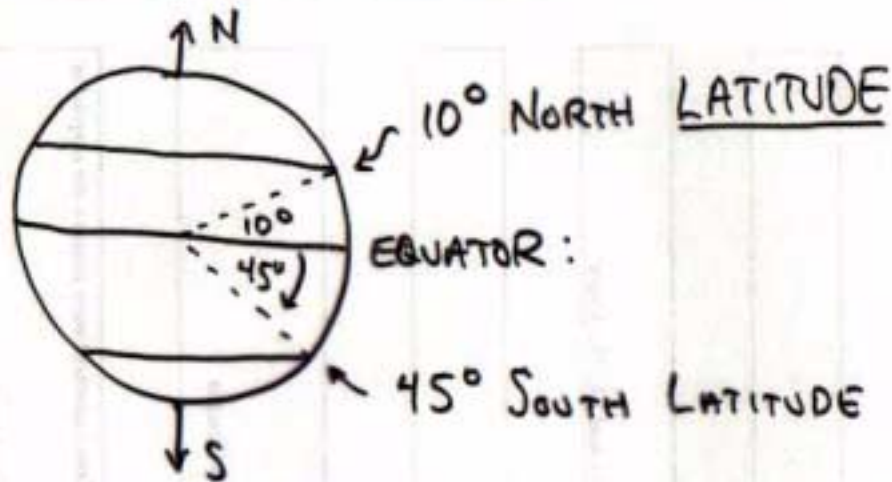 N
10° NORTH LATITUDE
10°
EQUATOR:
45°
45° SOUTH LATITUDE
S